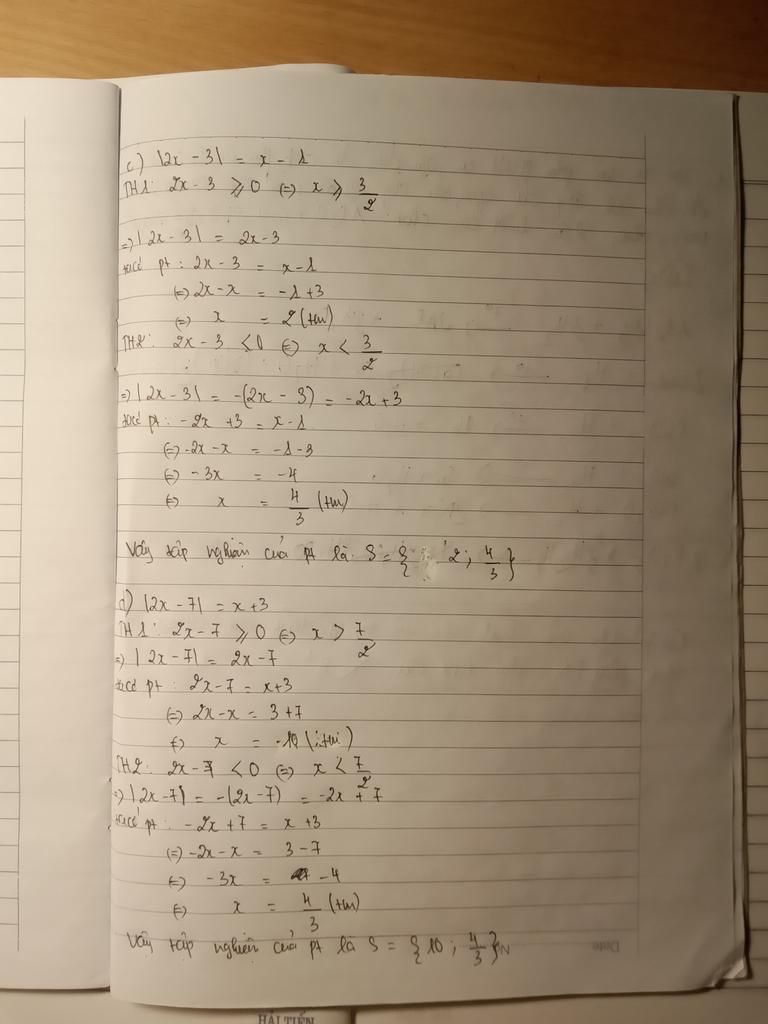 c) |2x - 3| = x - 1
TH1: 2x - 3 ⩾ 0 (=) x ⩾ 3/2
=> |2x - 3| = 2x - 3
ta có pt : 2x - 3 = x - 1
(=) 2x - x = -1 + 3
(=) x = 2 (tm)
TH2: 2x - 3 < 0 (=) x < 3/2
=> |2x - 3| = -(2x - 3) = -2x + 3
ta có pt : -2x + 3 = x - 1
(=) -2x - x = -1 - 3
(=) -3x = -4
(=) x = 4/3 (tm)
Vậy tập nghiệm của pt là S = { 2 ; 4/3 }
d) |2x - 7| = x + 3
TH1: 2x - 7 ⩾ 0 (=) x > 7/2
=> |2x - 7| = 2x - 7
ta có pt : 2x - 7 = x + 3
(=) 2x - x = 3 + 7
(=) x = 10 (tm)
TH2: 2x - 7 < 0 (=) x < 7/2
=> |2x - 7| = -(2x - 7) = -2x + 7
ta có pt : -2x + 7 = x + 3
(=) -2x - x = 3 - 7
(=) -3x = -4
(=) x = 4/3 (tm)
Vậy tập nghiệm của pt là S = { 10 ; 4/3 }
HẢI TIẾN